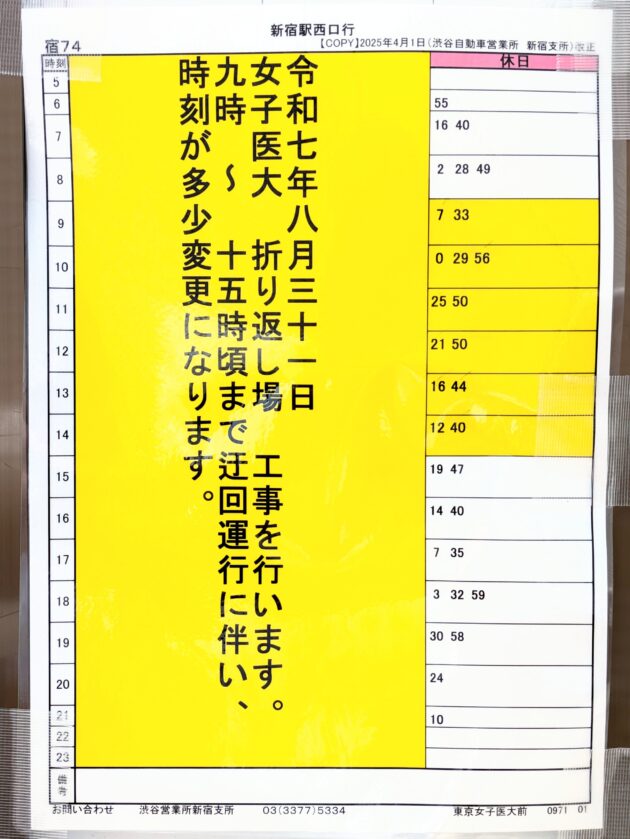 新宿駅西口行
宿74
【COPY】2025年4月1日(渋谷自動車営業所 新宿支所)改正
時刻 休日
令和七年八月三十一日
女子医大 折り返し場 工事を行います。
九時 ～ 十五時頃まで迂回運行に伴い、
時刻が多少変更になります。
5
6 55
7 16 40
8 2 28 49
9 7 33
10 0 29 56
11 25 50
12 21 50
13 16 44
14 12 40
15 19 47
16 14 40
17 7 35
18 3 32 59
19 30 58
20 24
21 10
22
23
備考
お問い合わせ 渋谷営業所新宿支所 03(3377)5334 東京女子医大前 0971 01